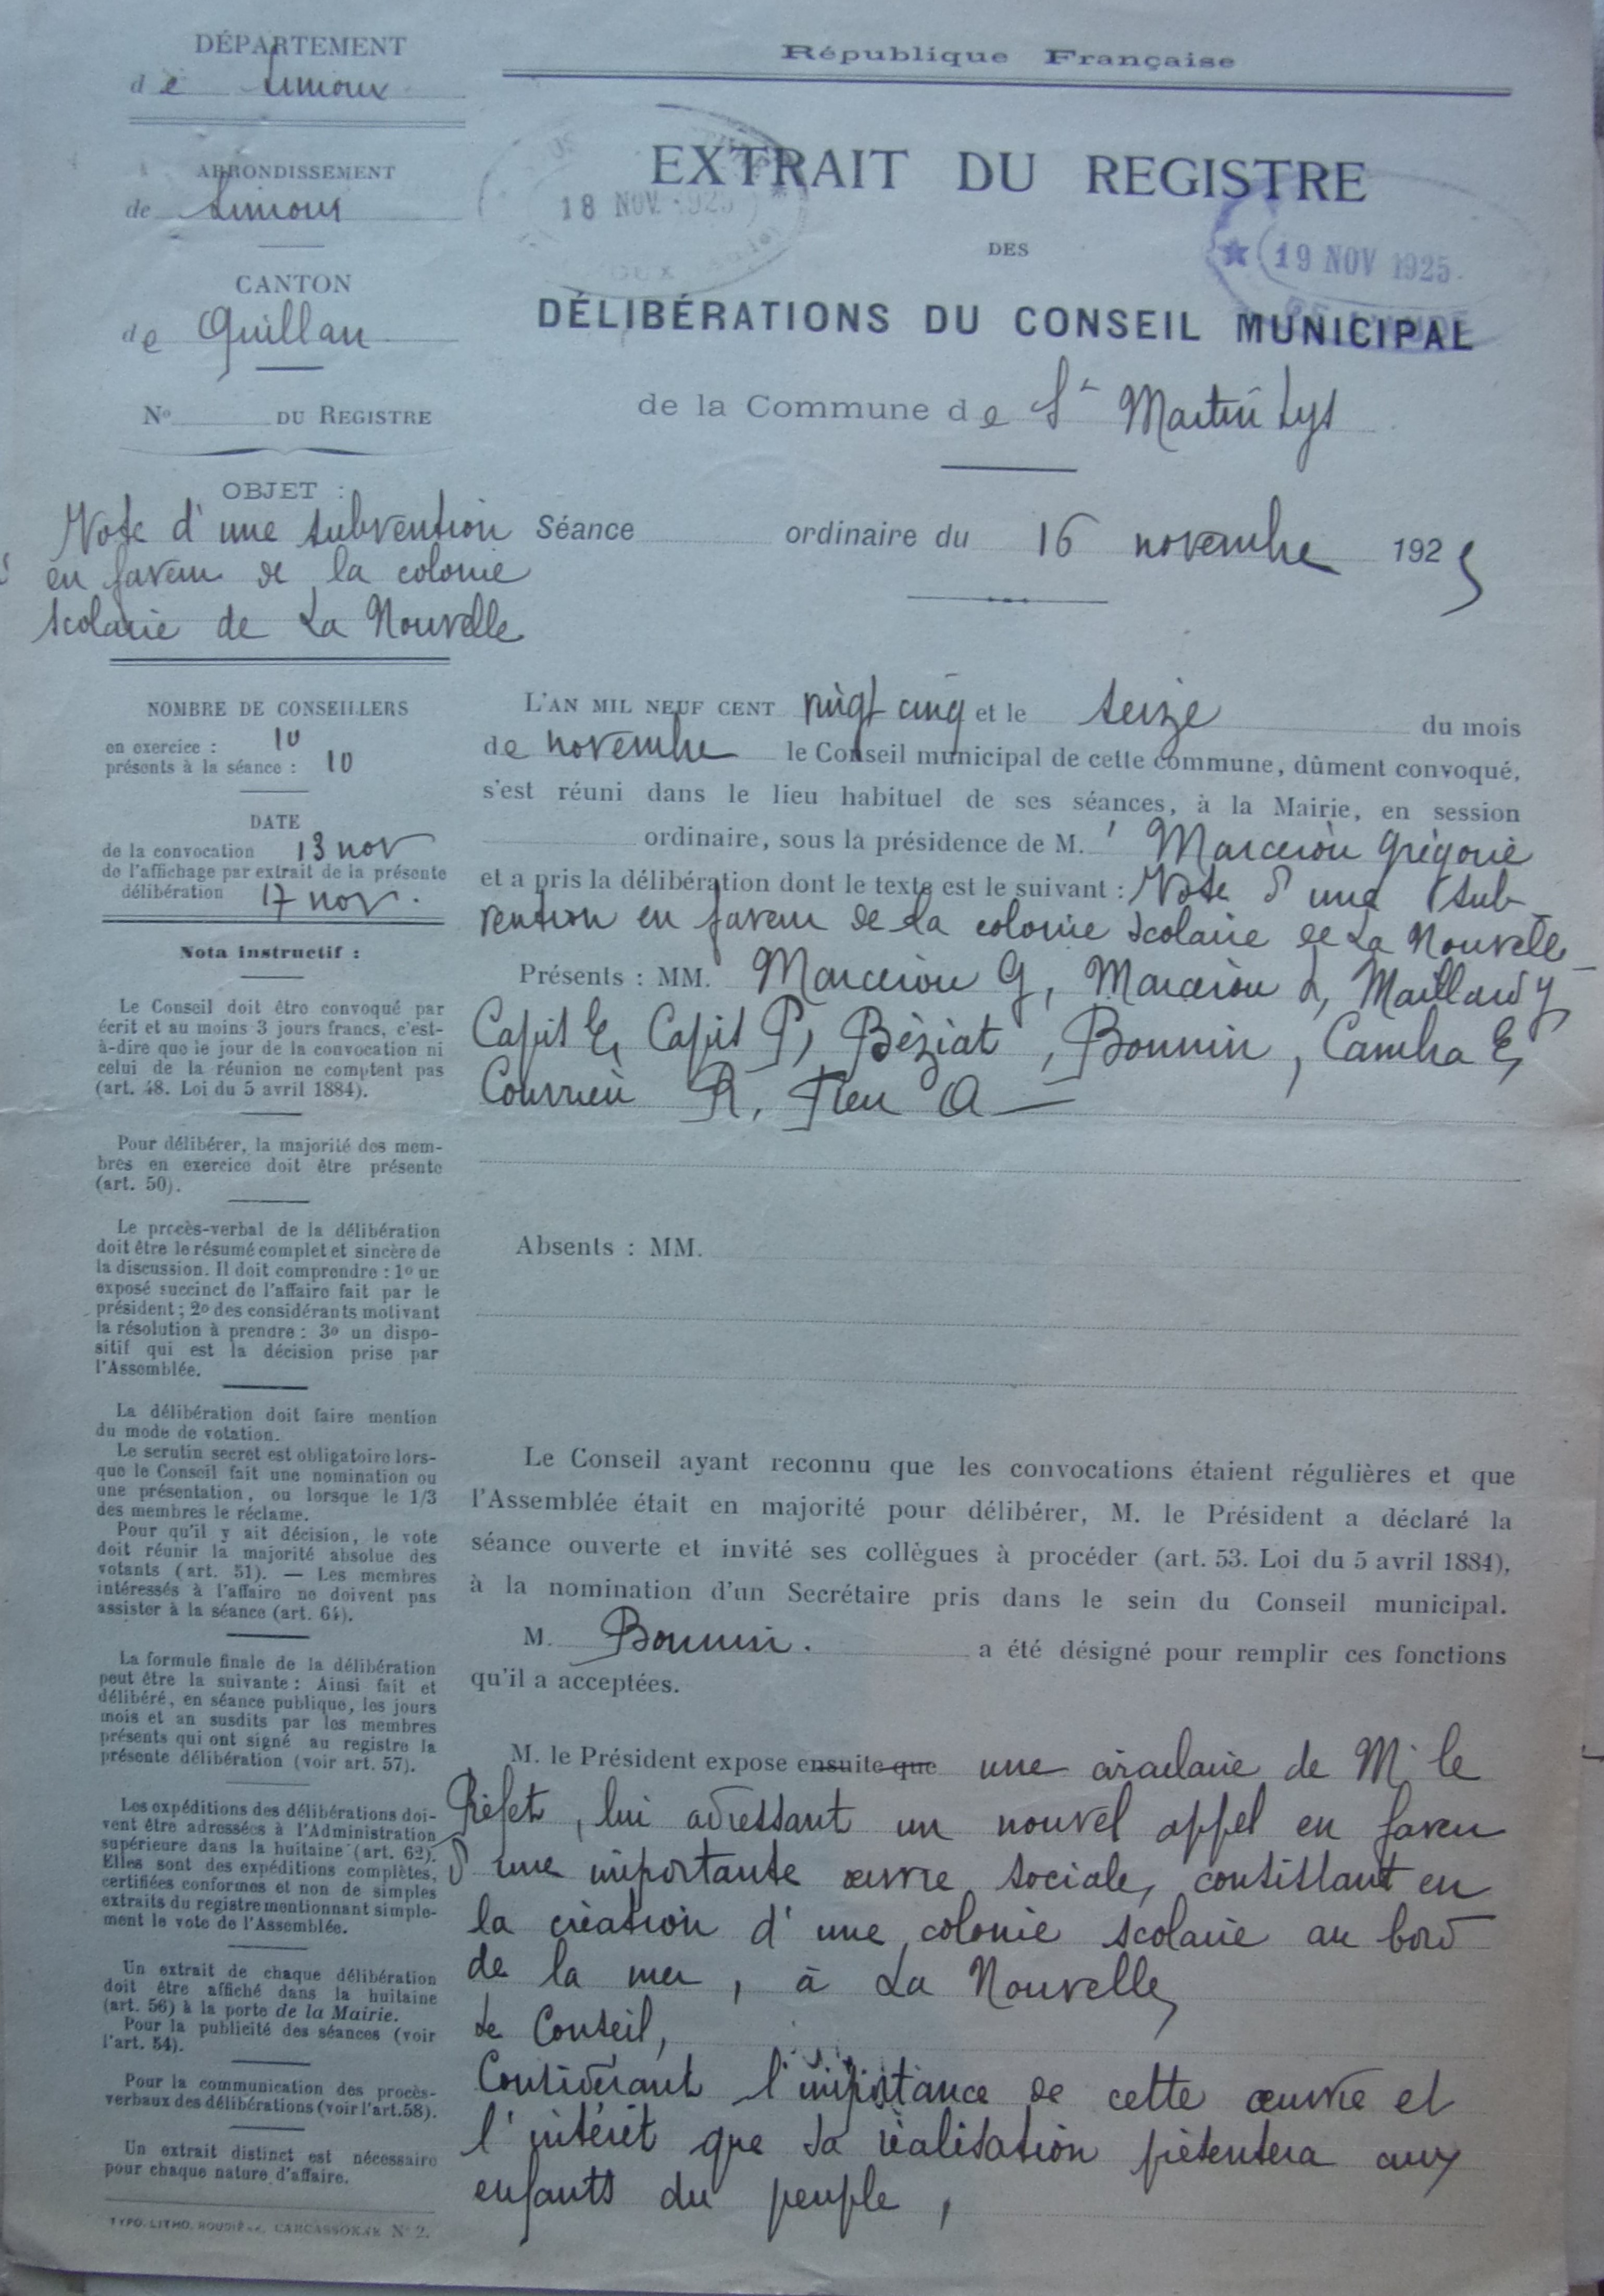 DÉPARTEMENT
de Limoux
ARRONDISSEMENT
de Limoux
CANTON
de Quillan
No DU REGISTRE
OBJET :
Vote d'une subvention
en faveur de la colonie
scolaire de La Nouvelle
NOMBRE DE CONSEILLERS
en exercice : 10
présents à la séance : 10
DATE
de la convocation 13 nov
de l'affichage par extrait de la présente
délibération 17 nov.
Nota instructif :
Le Conseil doit être convoqué par
écrit et au moins 3 jours francs, c'est-
à-dire que le jour de la convocation ni
celui de la réunion ne comptent pas
(art. 48. Loi du 5 avril 1884).
Pour délibérer, la majorité des mem-
bres en exercice doit être présente
(art. 50).
Le procès-verbal de la délibération
doit être le résumé complet et sincère de
la discussion. Il doit comprendre : 1o un
exposé succinct de l'affaire fait par le
président ; 2o des considérants motivant
la résolution à prendre : 3o un dispo-
sitif qui est la décision prise par
l'Assemblée.
La délibération doit faire mention
du mode de votation.
Le scrutin secret est obligatoire lors-
que le Conseil fait une nomination ou
une présentation, ou lorsque le 1/3
des membres le réclame.
Pour qu'il y ait décision, le vote
doit réunir la majorité absolue des
votants (art. 51). — Les membres
intéressés à l'affaire ne doivent pas
assister à la séance (art. 64).
La formule finale de la délibération
peut être la suivante : Ainsi fait et
délibéré, en séance publique, les jours
mois et an susdits par les membres
présents qui ont signé au registre la
présente délibération (voir art. 57).
Les expéditions des délibérations doi-
vent être adressées à l'Administration
supérieure dans la huitaine (art. 62).
Elles sont des expéditions complètes,
certifiées conformes et non de simples
extraits du registre mentionnant simple-
ment le vote de l'Assemblée.
Un extrait de chaque délibération
doit être affiché dans la huitaine
(art. 56) à la porte de la Mairie.
Pour la publicité des séances (voir
l'art. 54).
Pour la communication des procès-
verbaux des délibérations (voir l'art.58).
Un extrait distinct est nécessaire
pour chaque nature d'affaire.
TYPO. LITHO. ROUDIÈRE, CARCASSONNE No 2.
République Française
EXTRAIT DU REGISTRE
18 NOV. 1925
DES
19 NOV 1925
DÉLIBÉRATIONS DU CONSEIL MUNICIPAL
de la Commune de St Martin Lys
Séance ordinaire du 16 novembre 1925
L'AN MIL NEUF CENT vingt cinq et le seize du mois
de novembre le Conseil municipal de cette commune, dûment convoqué,
s'est réuni dans le lieu habituel de ses séances, à la Mairie, en session
ordinaire, sous la présidence de M. Marcerou Grégoire
et a pris la délibération dont le texte est le suivant : Vote d'une sub-
vention en faveur de la colonie scolaire de La Nouvelle
Présents : MM. Marcerou G, Marcerou L, Maillard Y
Capit E, Capit P, Béziat, Bonnin, Camba E,
Courrieu R, A —
Absents : MM.
Le Conseil ayant reconnu que les convocations étaient régulières et que
l'Assemblée était en majorité pour délibérer, M. le Président a déclaré la
séance ouverte et invité ses collègues à procéder (art. 53. Loi du 5 avril 1884),
à la nomination d'un Secrétaire pris dans le sein du Conseil municipal.
M. Bonnin. a été désigné pour remplir ces fonctions
qu'il a acceptées.
M. le Président expose ensuite que une circulaire de Mr le
Préfet, lui adressant un nouvel appel en faveur
d'une importante œuvre sociale, consistant en
la création d'une colonie scolaire au bord
de la mer, à La Nouvelle,
Le Conseil,
Considérant l'importance de cette œuvre et
l'intérêt que sa réalisation présentera aux
enfants du peuple,